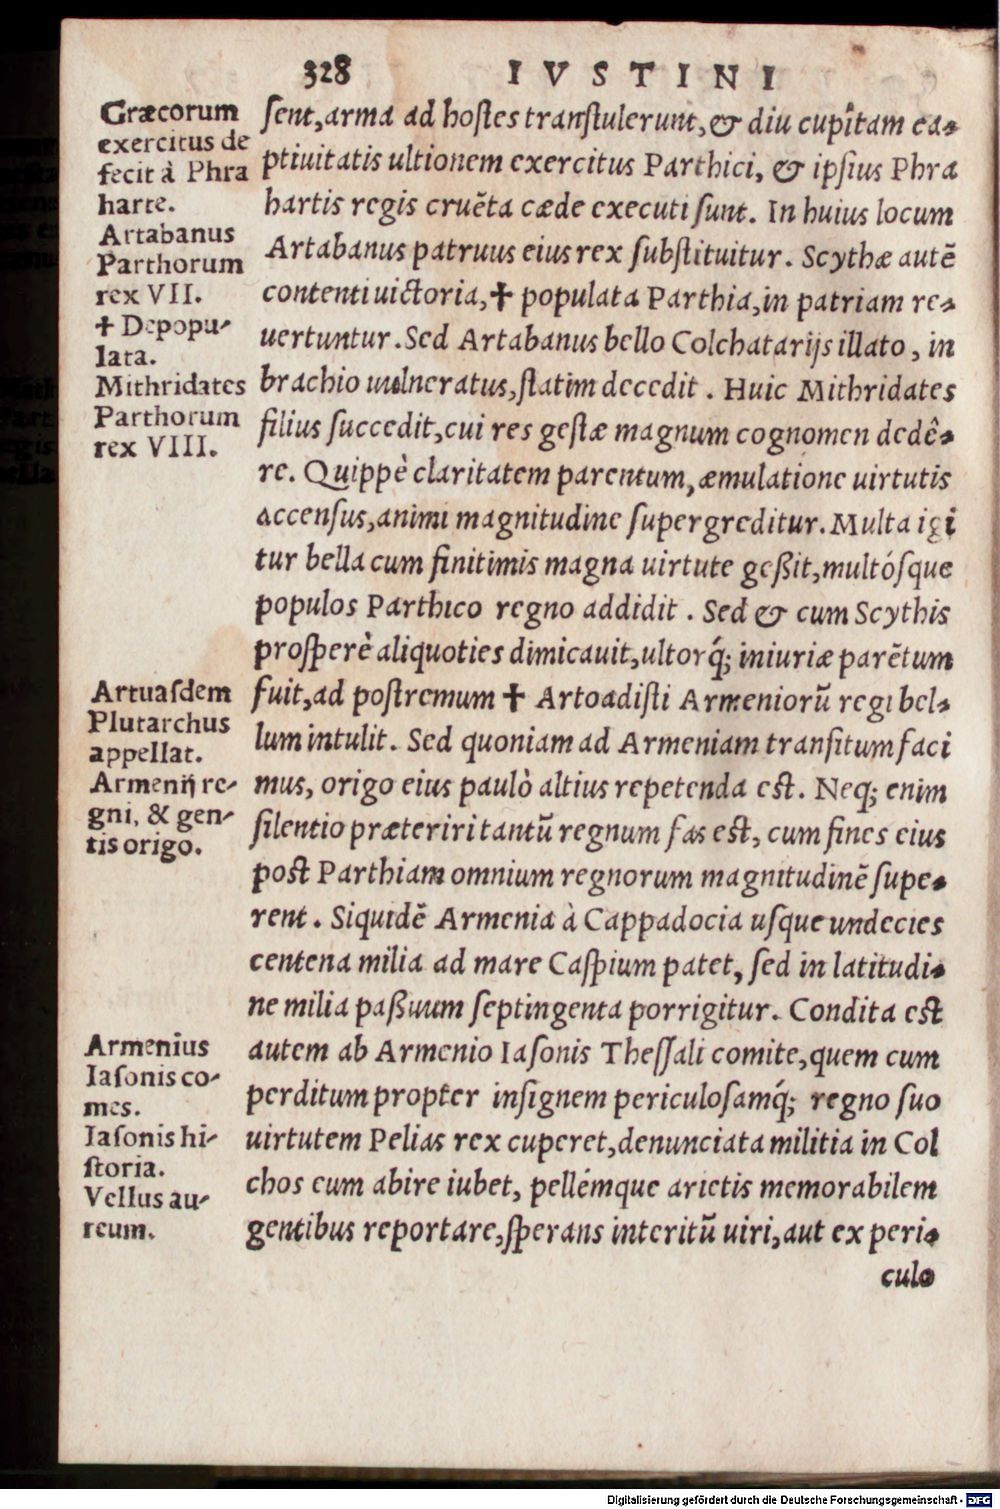 328 IVSTINI
Græcorum
exercitus de
fecit à Phra
harte.
Artabanus
Parthorum
rex VII.
✝ Depopu-
lata.
Mithridates
Parthorum
rex VIII.
Artuasdem
Plutarchus
appellat.
Armenij re-
gni, & gen-
tis origo.
Armenius
Iasonis co-
mes.
Iasonis hi-
storia.
Vellus au-
reum.
ſent, arma ad hoſtes tranſtulerunt, & diu cupitam ca-
ptiuitatis ultionem exercitus Parthici, & ipſius Phra
hartis regis cruẽta cæde executi ſunt. In huius locum
Artabanus patruus eius rex ſubſtituitur. Scythæ autẽ
contenti uictoria, ✝ populata Parthia, in patriam re-
uertuntur. Sed Artabanus bello Colchatarijs illato, in
brachio uulneratus, ſtatim decedit. Huic Mithridates
filius ſuccedit, cui res geſtæ magnum cognomen dedê-
re. Quippè claritatem parentum, æmulatione uirtutis
accenſus, animi magnitudine ſupergreditur. Multa igi
tur bella cum finitimis magna uirtute geßit, multóſque
populos Parthico regno addidit. Sed & cum Scythis
proſperè aliquoties dimicauit, ultorq́; iniuriæ parẽtum
fuit, ad poſtremum ✝ Artoadiſti Armeniorũ regi bel-
lum intulit. Sed quoniam ad Armeniam tranſitum faci
mus, origo eius paulò altius repetenda eſt. Neq; enim
ſilentio præteriri tantũ regnum fas eſt, cum fines eius
poſt Parthiam omnium regnorum magnitudinẽ ſupe-
rent. Siquidẽ Armenia à Cappadocia uſque undecies
centena milia ad mare Caſpium patet, ſed in latitudi-
ne milia paßuum ſeptingenta porrigitur. Condita eſt
autem ab Armenio Iaſonis Theſſali comite, quem cum
perditum propter inſignem periculoſamq́; regno ſuo
uirtutem Pelias rex cuperet, denunciata militia in Col
chos eum abire iubet, pellémque arietis memorabilem
gentibus reportare, ſperans interitũ uiri, aut ex peri-
culo
Digitalisierung gefördert durch die Deutsche Forschungsgemeinschaft - DFG